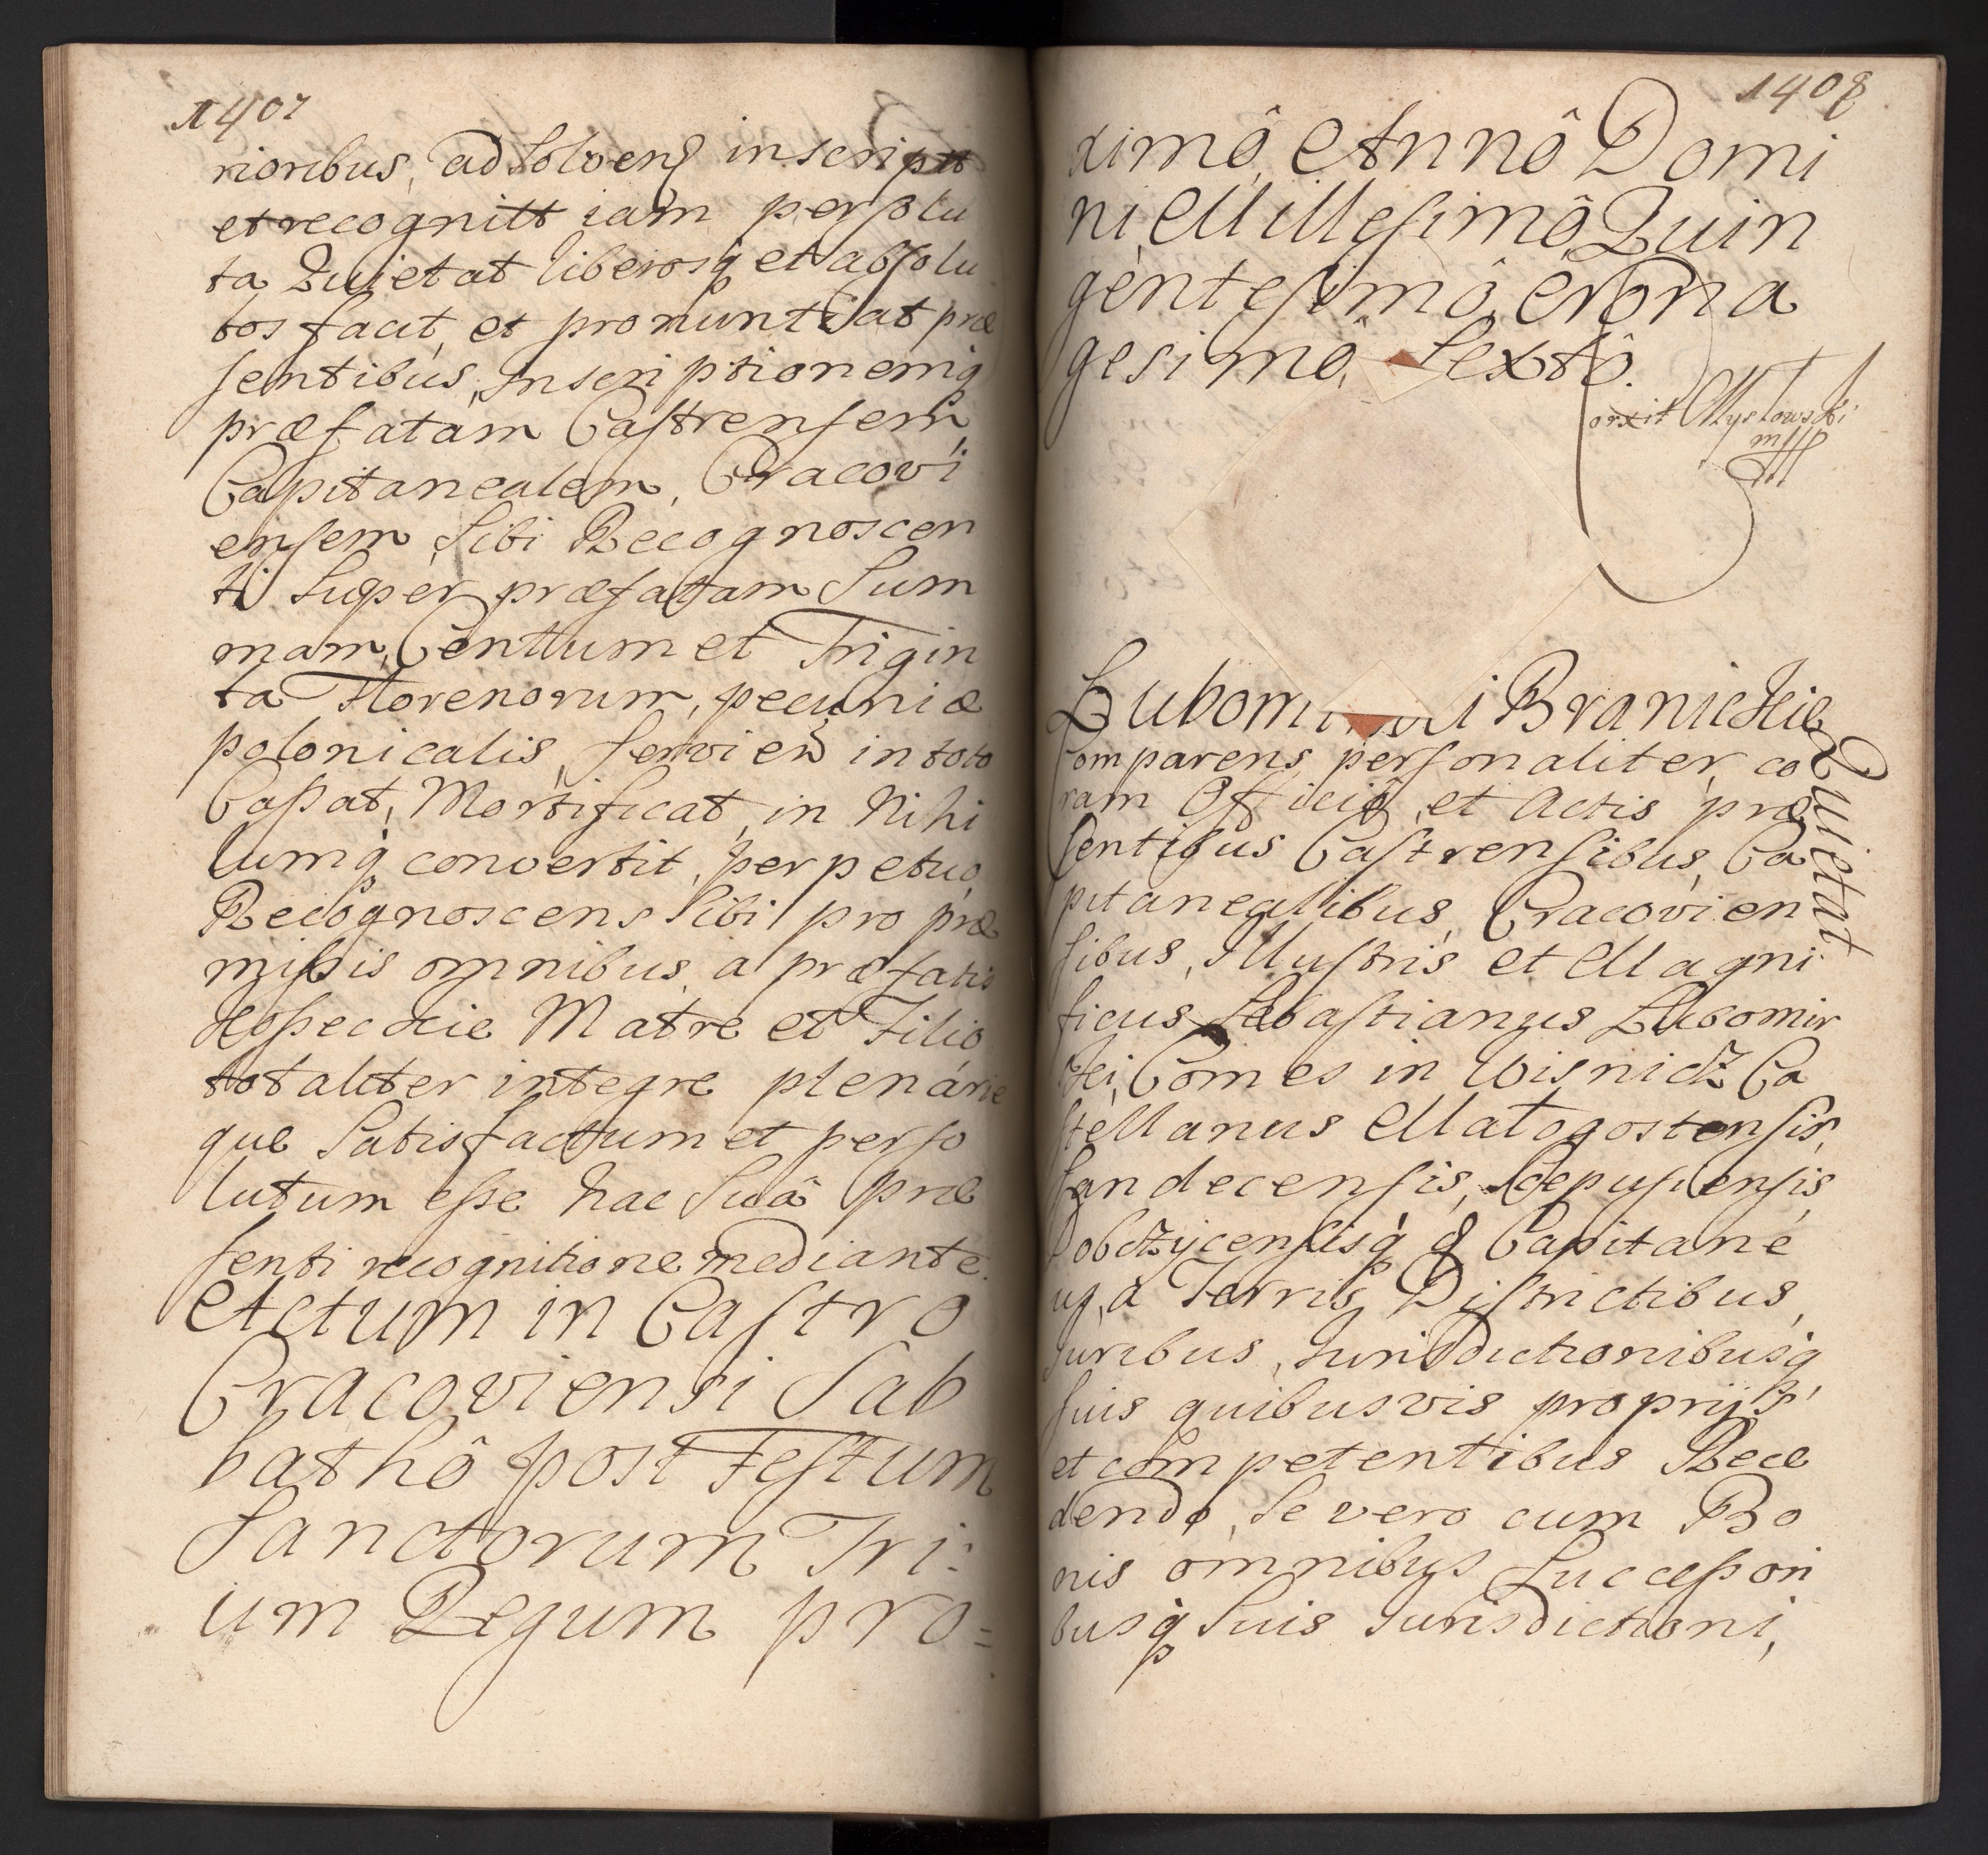 1407
rioribus, ad Solvend inscriptt
et recognitt iam persolu
ta Quietat liberosq et absolu
tos facit, et pronuntiat præ
sentibus, Inscriptionemq
præfatam Castrensem
Capitanealem, Cracovi
ensem Sibi Recognoscen
ti Super præfatam Sum
mam, Centtum et Trigin
ta Florenorum, pecuniæ
polonicalis, servien in toto
Cassat, Mortificat, in Nihi
lumq convertit, perpetuo,
Recognoscens Sibi pro præ
missis omnibus, a præfatis
Kosseckie Matre et Filio
totaliter integre plenarie
que Satisfacttum et perso
lutum esse hac Suâ præ
senti recognitione mediante.
Actum in Castro
Cracoviensi Sab
bathô post Festum
Sanctorum Tri:
um Regum pro=
1408
ximô, Annô Domi
ni, Millesimô Quin
gentesimô, Nona
gesimô, Sextô.
orxit Mysłowski
mpp
Lubomi i Branickie
Quietat
Comparens personaliter co
ram Officiô, et Actis præ
sentibus Castrensibus, Ca
pitanealibus, Cracovien
sibus, Illustris et Magni
ficus Sebastianus Lubomir
ski, Comes in Wisnicz Ca
stellanus Małogostensis,
Sandecensis, Scepusiensis,
Dobczycensisq & Capitane
us, a Terris, Districtibus,
Iuribus, Iurisdictionibusq
suis quibusvis proprijs,
et competentibus Rece
dendo, Se vero cum Bo
nis omnibus Successori
busq Suis Iurisdictioni,